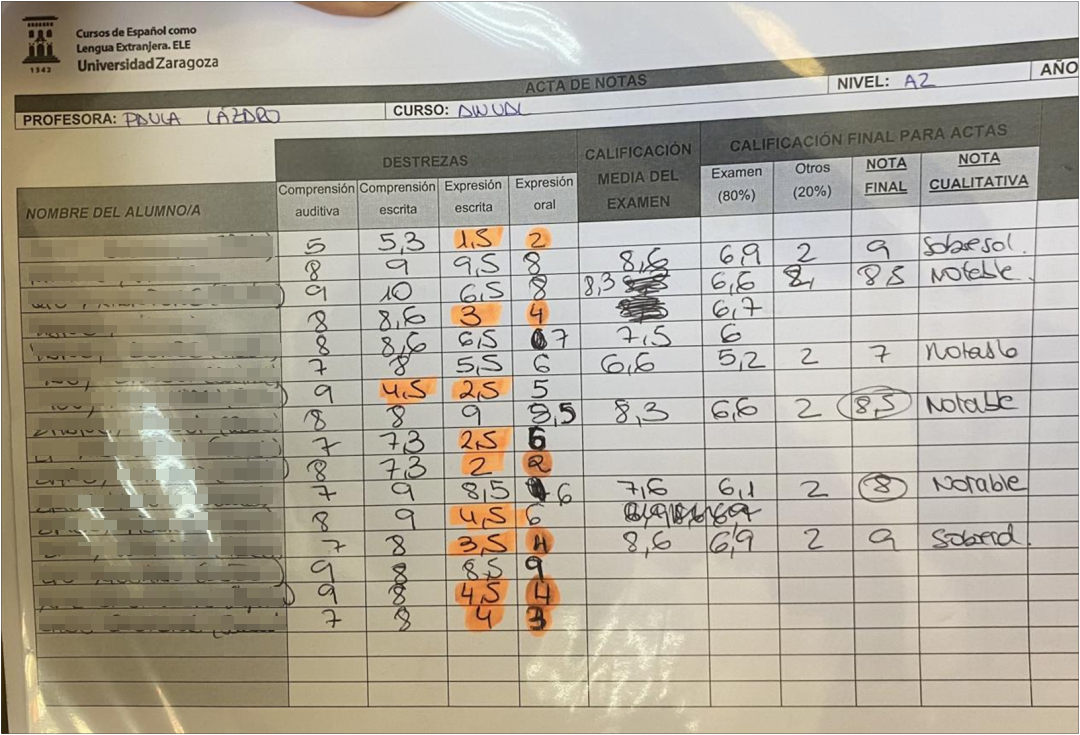 Cursos de Español como
Lengua Extranjera. ELE
Universidad Zaragoza
1542
ACTA DE NOTAS
PROFESORA: PAULA LÁZARO CURSO: ANUAL NIVEL: A2 AÑO
DESTREZAS CALIFICACIÓN MEDIA DEL EXAMEN CALIFICACIÓN FINAL PARA ACTAS
NOMBRE DEL ALUMNO/A Comprensión auditiva Comprensión escrita Expresión escrita Expresión oral Examen (80%) Otros (20%) NOTA FINAL NOTA CUALITATIVA
5 5,3 1,5 2
8 9 9,5 8 8,6 6,9 2 9 Sobresal.
9 10 6,5 8 8,3 6,6 8,5 Notable.
8 8,6 3 4 6,7
8 8,6 6,5 7 7,5 6
7 8 5,5 6 6,6 5,2 2 7 Notable
9 4,5 2,5 5
8 8 9 8,5 8,3 6,6 2 8,5 Notable
7 7,3 2,5 6
8 7,3 2 2
7 9 8,5 6 7,6 6,1 2 8 Notable
8 9 4,5 6
7 8 3,5 4
9 8 8,5 9 8,6 6,9 2 9
9 8 4,5 4
7 8 4 3